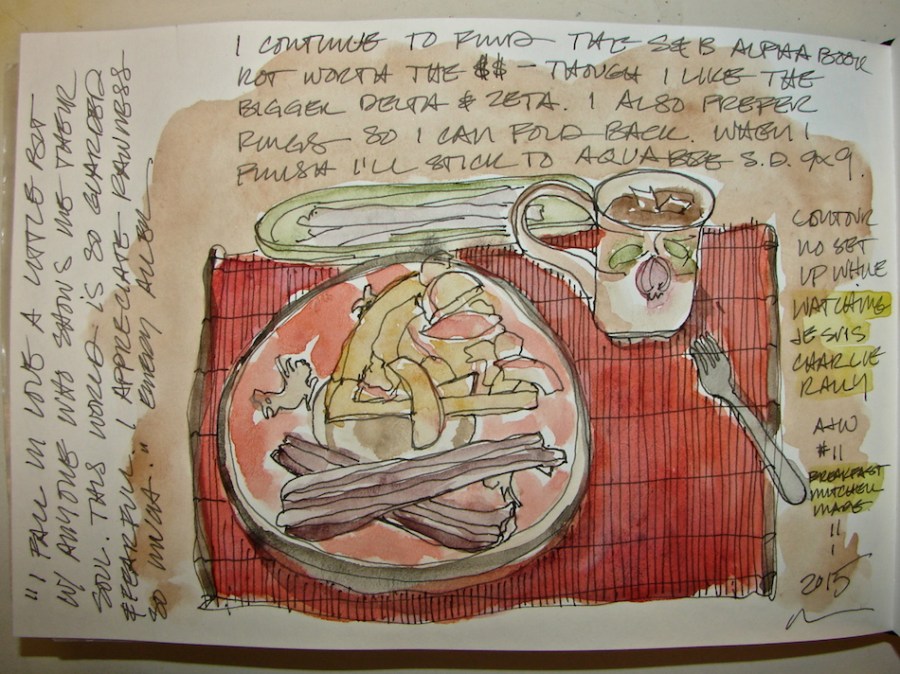 I CONTINUE TO FIND THE S&B ALPHA BOOK
NOT WORTH THE $$ – THOUGH I LIKE THE
BIGGER DELTA & ZETA. I ALSO PREFER
RINGS SO I CAN FOLD BACK. WHEN I
FINISH I'LL STICK TO AQUABEE S.D. 9x9.
"I FALL IN LOVE A LITTLE BIT
W/ ANYONE WHO SHOWS ME THEIR
SOUL. THIS WORLD IS SO GUARDED
& FEARFUL. I APPRECIATE RAWNESS
SO MUCH." EMERY ALLEN
CONTOUR
NO SET
UP WHILE
WATCHING
JE SUIS
CHARLIE
RALLY
#11
BREAKFAST
MITCHELL
MADE
11
1
2015